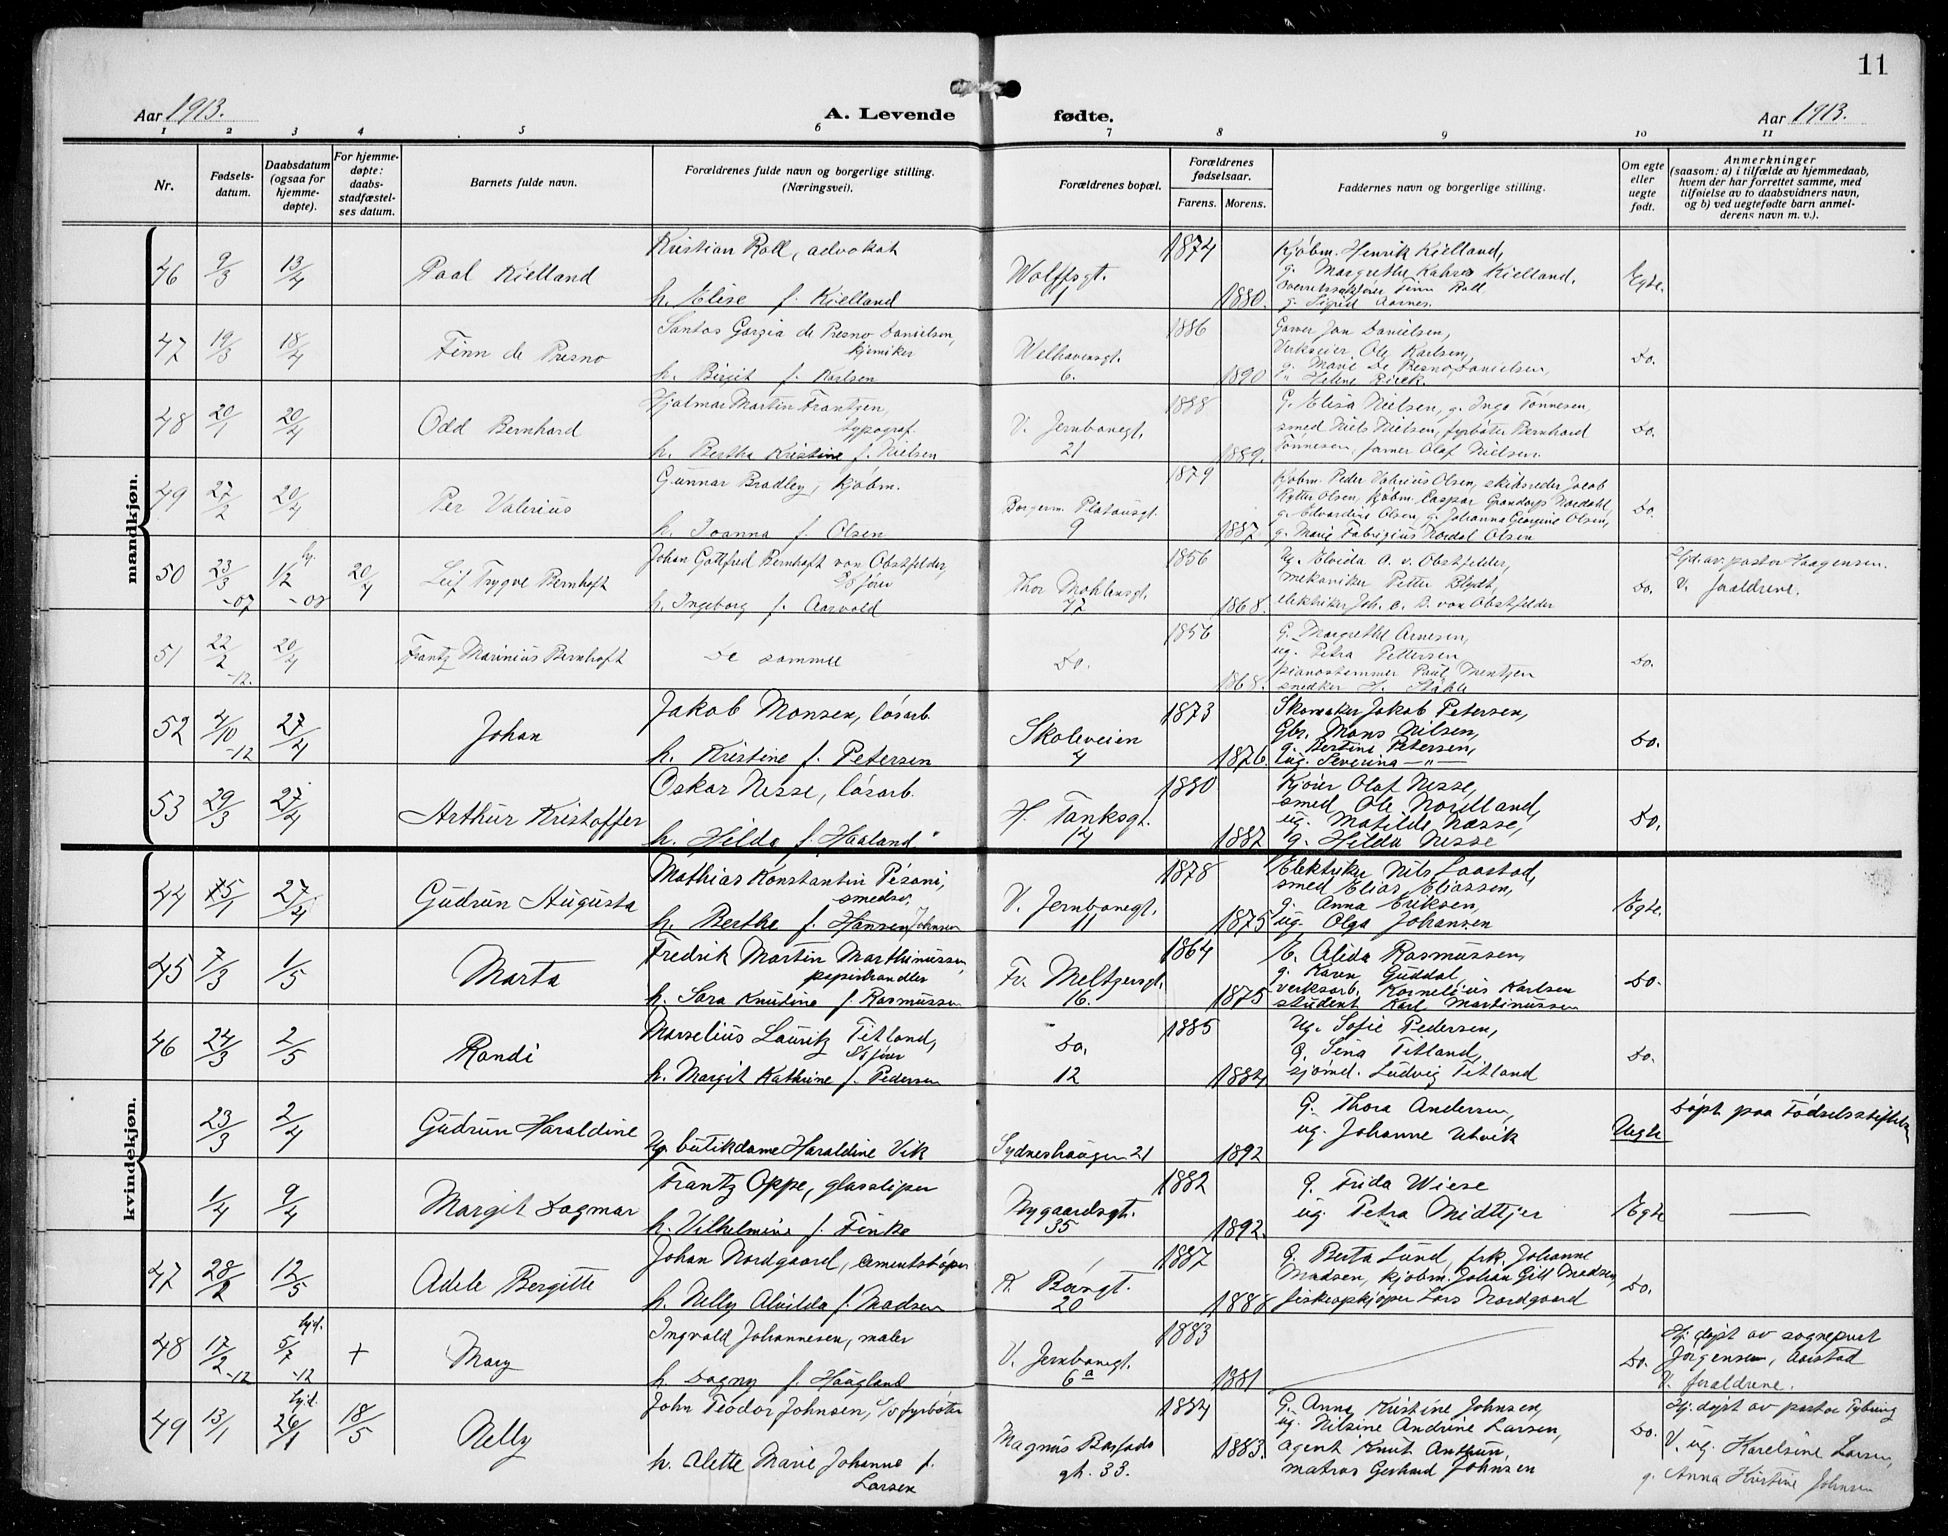 11
Aar 1913.
A. Levende fødte.
Aar 1913.
1 2 3 4 5 6 7 8 9 10 11
Nr.
Fødsels-
datum.
Daabsdatum
(ogsaa for
hjemme-
døpte).
For hjemme-
døpte:
daabs-
stadfæstel-
ses datum.
Barnets fulde navn.
Forældrenes fulde navn og borgerlige stilling.
(Næringsvei).
Forældrenes bopæl.
Forældrenes
fødselsaar.
Farens. Morens.
Faddernes navn og borgerlige stilling.
Om egte
eller
uegte
født.
Anmerkninger
(saasom: a) i tilfælde av hjemmedaab,
hvem der har forrettet samme, med
tilføielse av to daabsvidners navn,
og b) ved uegtefødte barn anmel-
derens navn m. v.).
mandkjøn.
46 9/3 13/4 Paal Kielland
Kristian Roll, advokat
h. Elise f. Kielland
Wolffsgt.
1
1874
1880.
Kjøbm. Henrik Kielland,
g. Margrethe Kahrs Kielland,
Finn Roll
g. Sigrid Aarnes.
Egte.
47 19/3 18/4 Finn de Presno
Santos Gorgia de Presno Danielsen,
kjemiker
h. Birgit f. Karlsen
Welhavensgt.
6.
1886
1890
Garver Jan Danielsen,
Verkseier Ole Karlsen,
g. Marie De Presno Danielsen,
" Helene Rieck.
Do.
48 20/1 20/4 Odd Bernhard
Hjalmar Martin Frantzen,
typograf.
h. Bertha Kristine f. Nielsen
V. Jernbanegt.
21
1888
1889.
G. Elisa Nielsen, g. Inga Tønnesen,
smed Niels Nielsen, fyrbøter Bernhard
Tønnesen, former Olaf Nielsen.
Do.
49 27/2 20/4 Per Valerius
Gunnar Bradley, kjøbm.
h. Joanna f. Olsen
Borgerm. Platousgt.
9
1879
1887
Kjøbm. Peder Valerius Olsen, skibsreder Jacob
Rytter Olsen, kjøbm. Caspar Nordahl,
g. Elvardine Olsen, g. Johanna Georgine Olsen,
g. Marie Fabrizius Nordal Olsen
Do.
50 23/3 -07 hj. 1/2 -08 20/4 Leif Trygve Bernhoft
Johan Gottfred Bernhoft von Obstfelder,
h. Ingeborg f. Aasvold
Thor Møhlensgt.
47
1856
1868.
Ug. Elvida A. v. Obstfelder,
mekaniker Petter Blydt,
elektriker Joh. C. D. von Obstfelder
Do.
Hjd. av pastor Haagensen.
V. foraldrene.
51 22/2 -12. 20/4 Frantz Marinius Bernhoft
De samme
Do.
1856
1868.
G. Margrethe Arnesen,
ug. Petra Pettersen
pianostemmer Paul Mentzen
snedker H. Ståhle
Do.
52 4/10 -12 27/4 Johan
Jakob Monsen, løsarb.
h. Kristine f. Petersen
Skoleveien
4
1873
1876.
Skomaker Jakob Petersen,
Gbr. Mons Nilsen,
g. Bertine Petersen,
ug. Severina —"—
Do.
53 29/3 27/4 Arthur Kristoffer
Oskar Nesse, løsarb.
h. Hilda f. Haaland
H. Tanksgt.
14
1880
1887
Kjører Olaf Nesse,
smed Ole Norelland,
ug. Matilde Næsse,
g. Hilda Nesse
Do.
kvindekjøn.
44 15/1 27/4 Gudrun Augusta
Mathias Konstantin Pisani,
smedsv.
h. Berthe f. Hansen Johnsen
V. Jernbanegt.
11
1878
1875
Elektriker Nils Laastad,
smed Elias Eliassen,
g. Anna Eriksen,
ug. Olga Johansen
Egte.
45 7/3 1/5 Marta
Fredrik Martin Marthinussen,
papirhandler
h. Sara Knutine f. Rasmussen
Fr. Meltzersgt.
16.
1864
1875
E. Alida Rasmussen,
g. Karen Guddal,
verksarb. Kornelius Karlsen
student Karl Martinussen
Do.
46 24/3 2/5 Randi
Marselius Lauritz Titland,
h. Margit Kathrine f. Pedersen
Do.
12
1885
1884
Ug. Sofie Pedersen,
g. Sina Titland,
sjømd. Ludvig Titland
Do.
23/3 2/4 Gudrun Haraldine
Ug. butikdame Haraldine Vik
Sydneshaugen 21
1892
G. Thora Andersen,
ug. Johanne Utvik
Uegte
Døpt paa Fødselsstiftelsen
1/4 9/4 Margit Dagmar
Frantz Oppe, glassliper
h. Vilhelmine f. Finke
Nygaardsgt.
35
1882
1892.
g. Frida Wiese
ug. Petra Midttjer
Egte
47 28/2 12/5 Adele Bergitte
Johan Nordgaard, cementstøper
h. Nelly Alvilda f. Madsen
K. Baargt.
20
1887
1888
g. Berta Lund, frk. Johanne
Madsen, kjøbm. Johan Gill Madsen,
fiskeopkjøper Lars Nordgaard
Do.
48 17/2 -12 hjd. 5/7 -12 + Mary
Ingvald Johannesen, maler
h. Dagny f. Haugland
V. Jernbanegt.
6a
1883
1881
Do.
Hj. døpt av sogneprest
Jørgensen, Aarstad
V. foraldrene.
49 13/1 hjd. 26/1 18/5 Nelly
John Teodor Johnsen, fyrbøter
h. Alette Marie Johanne f.
Larsen
Magnus Barfods
gt. 33.
1884
1883.
G. Anna Kristine Johnsen,
ug. Nilsine Andrine Larsen,
agent Knut Anthun
matros Gerhard Johnsen
Do.
Hj. døpt av pastor Tybring
V. ug. Karelsine Larsen,
g. Anna Kristine Johnsen